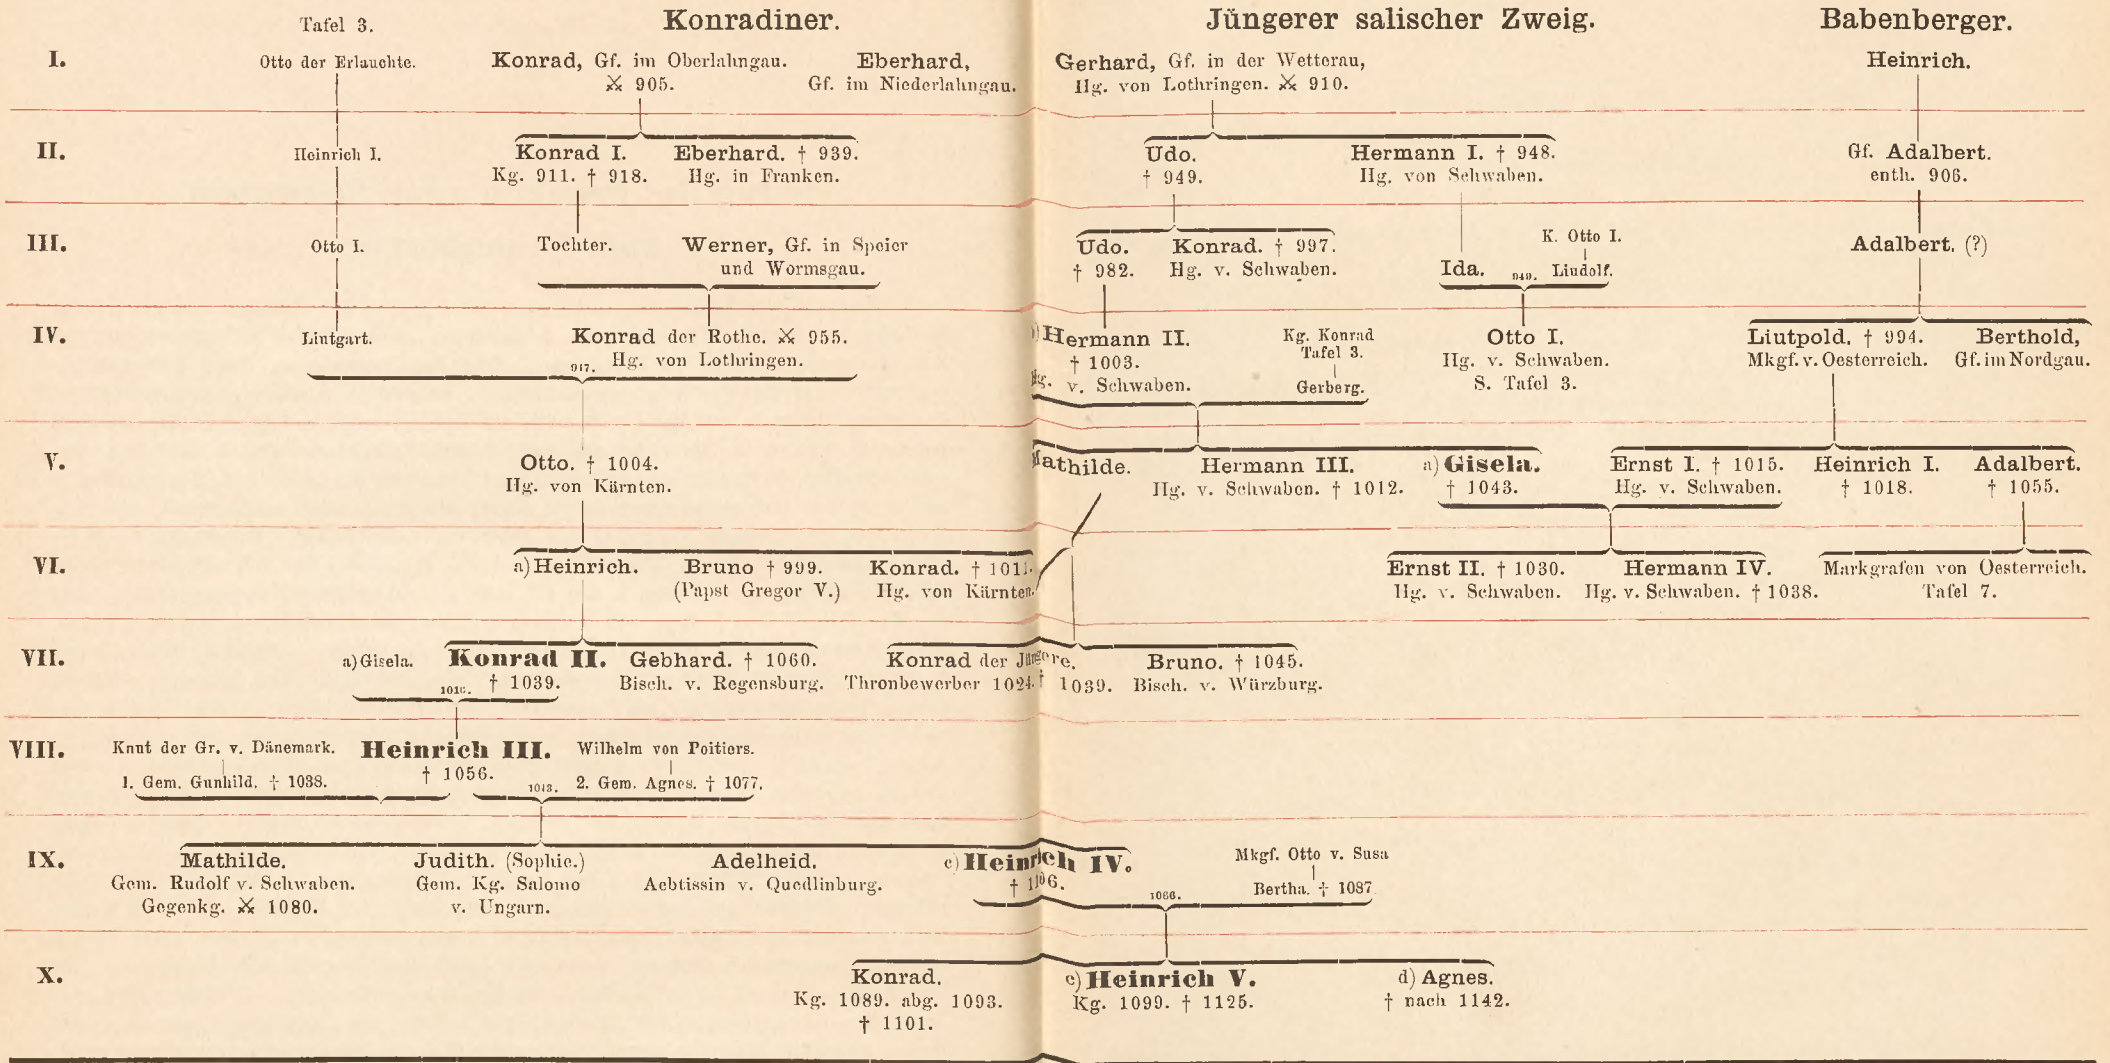 Tafel 3.
Konradiner.
Jüngerer salischer Zweig.
Babenberger.
I.
Otto der Erlauchte.
Konrad, Gf. im Oberlahngau.
⚔ 905.
Eberhard,
Gf. im Niederlahngau.
Gerhard, Gf. in der Wetterau,
Hg. von Lothringen. ⚔ 910.
Heinrich.
II.
Heinrich I.
Konrad I.
Kg. 911. † 918.
Eberhard. † 939.
Hg. in Franken.
Udo.
† 949.
Hermann I. † 948.
Hg. von Schwaben.
Gf. Adalbert.
enth. 906.
III.
Otto I.
Tochter.
Werner, Gf. in Speier
und Wormsgau.
Udo.
† 982.
Konrad. † 997.
Hg. v. Schwaben.
K. Otto I.
Ida. 949. Liudolf.
Adalbert. (?)
IV.
Liutgart.
Konrad der Rothe. ⚔ 955.
947. Hg. von Lothringen.
Hermann II.
† 1003.
Hg. v. Schwaben.
Kg. Konrad
Tafel 3.
Gerberg.
Otto I.
Hg. v. Schwaben.
S. Tafel 3.
Liutpold. † 994.
Mkgf. v. Oesterreich.
Berthold,
Gf. im Nordgau.
V.
Otto. † 1004.
Hg. von Kärnten.
Mathilde.
Hermann III.
Hg. v. Schwaben. † 1012.
a) Gisela.
† 1043.
Ernst I. † 1015.
Hg. v. Schwaben.
Heinrich I.
† 1018.
Adalbert.
† 1055.
VI.
a) Heinrich.
Bruno † 999.
(Papst Gregor V.)
Konrad. † 1011.
Hg. von Kärnten.
Ernst II. † 1030.
Hg. v. Schwaben.
Hermann IV.
Hg. v. Schwaben. † 1038.
Markgrafen von Oesterreich.
Tafel 7.
VII.
a) Gisela.
1016.
Konrad II.
† 1039.
Gebhard. † 1060.
Bisch. v. Regensburg.
Konrad der Jüngere.
Thronbewerber 1024. † 1039.
Bruno. † 1045.
Bisch. v. Würzburg.
VIII.
Knut der Gr. v. Dänemark.
1. Gem. Gunhild. † 1038.
Heinrich III.
† 1056.
Wilhelm von Poitiers.
1043. 2. Gem. Agnes. † 1077.
IX.
Mathilde.
Gem. Rudolf v. Schwaben.
Gegenkg. ⚔ 1080.
Judith. (Sophie.)
Gem. Kg. Salomo
v. Ungarn.
Adelheid.
Aebtissin v. Quedlinburg.
c) Heinrich IV.
† 1106.
1066.
Mkgf. Otto v. Susa
Bertha. † 1087
X.
Konrad.
Kg. 1089. abg. 1093.
† 1101.
c) Heinrich V.
Kg. 1099. † 1125.
d) Agnes.
† nach 1142.